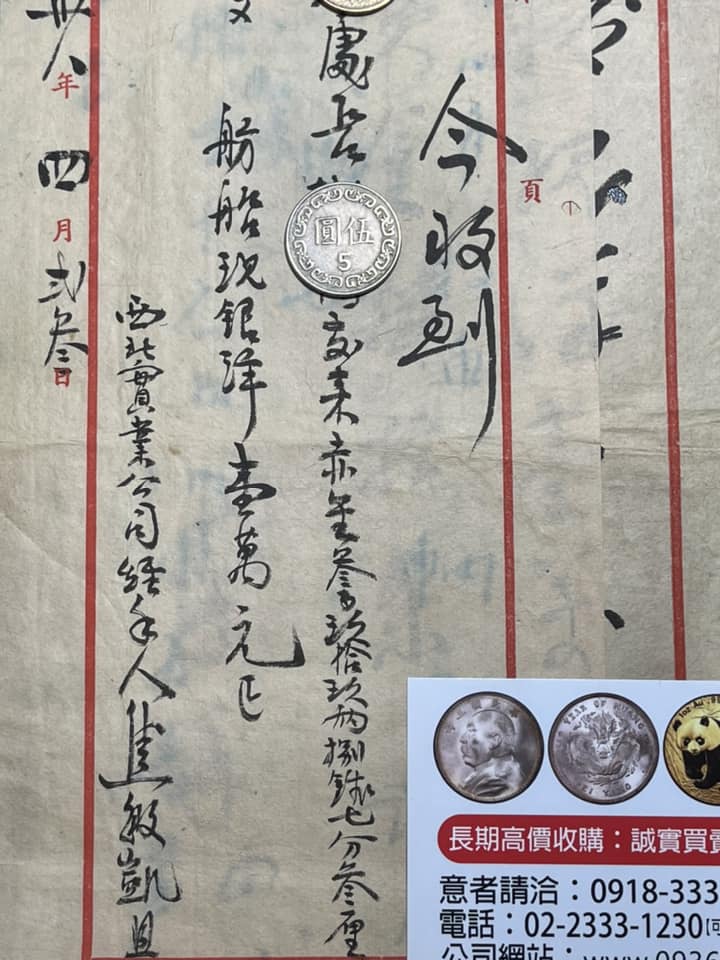 今收到
頁
處長
交來赤金叁百玖拾玖兩捌錢七分叁厘
舫船現銀洋壹萬元正
西北實業公司經手人
敏凱
年四月弍叁日
伍圓
5
YEAR OF KUANG
長期高價收購：誠實買賣
意者請洽：0918-333
電話：02-2333-1230
公司網站：www.0936